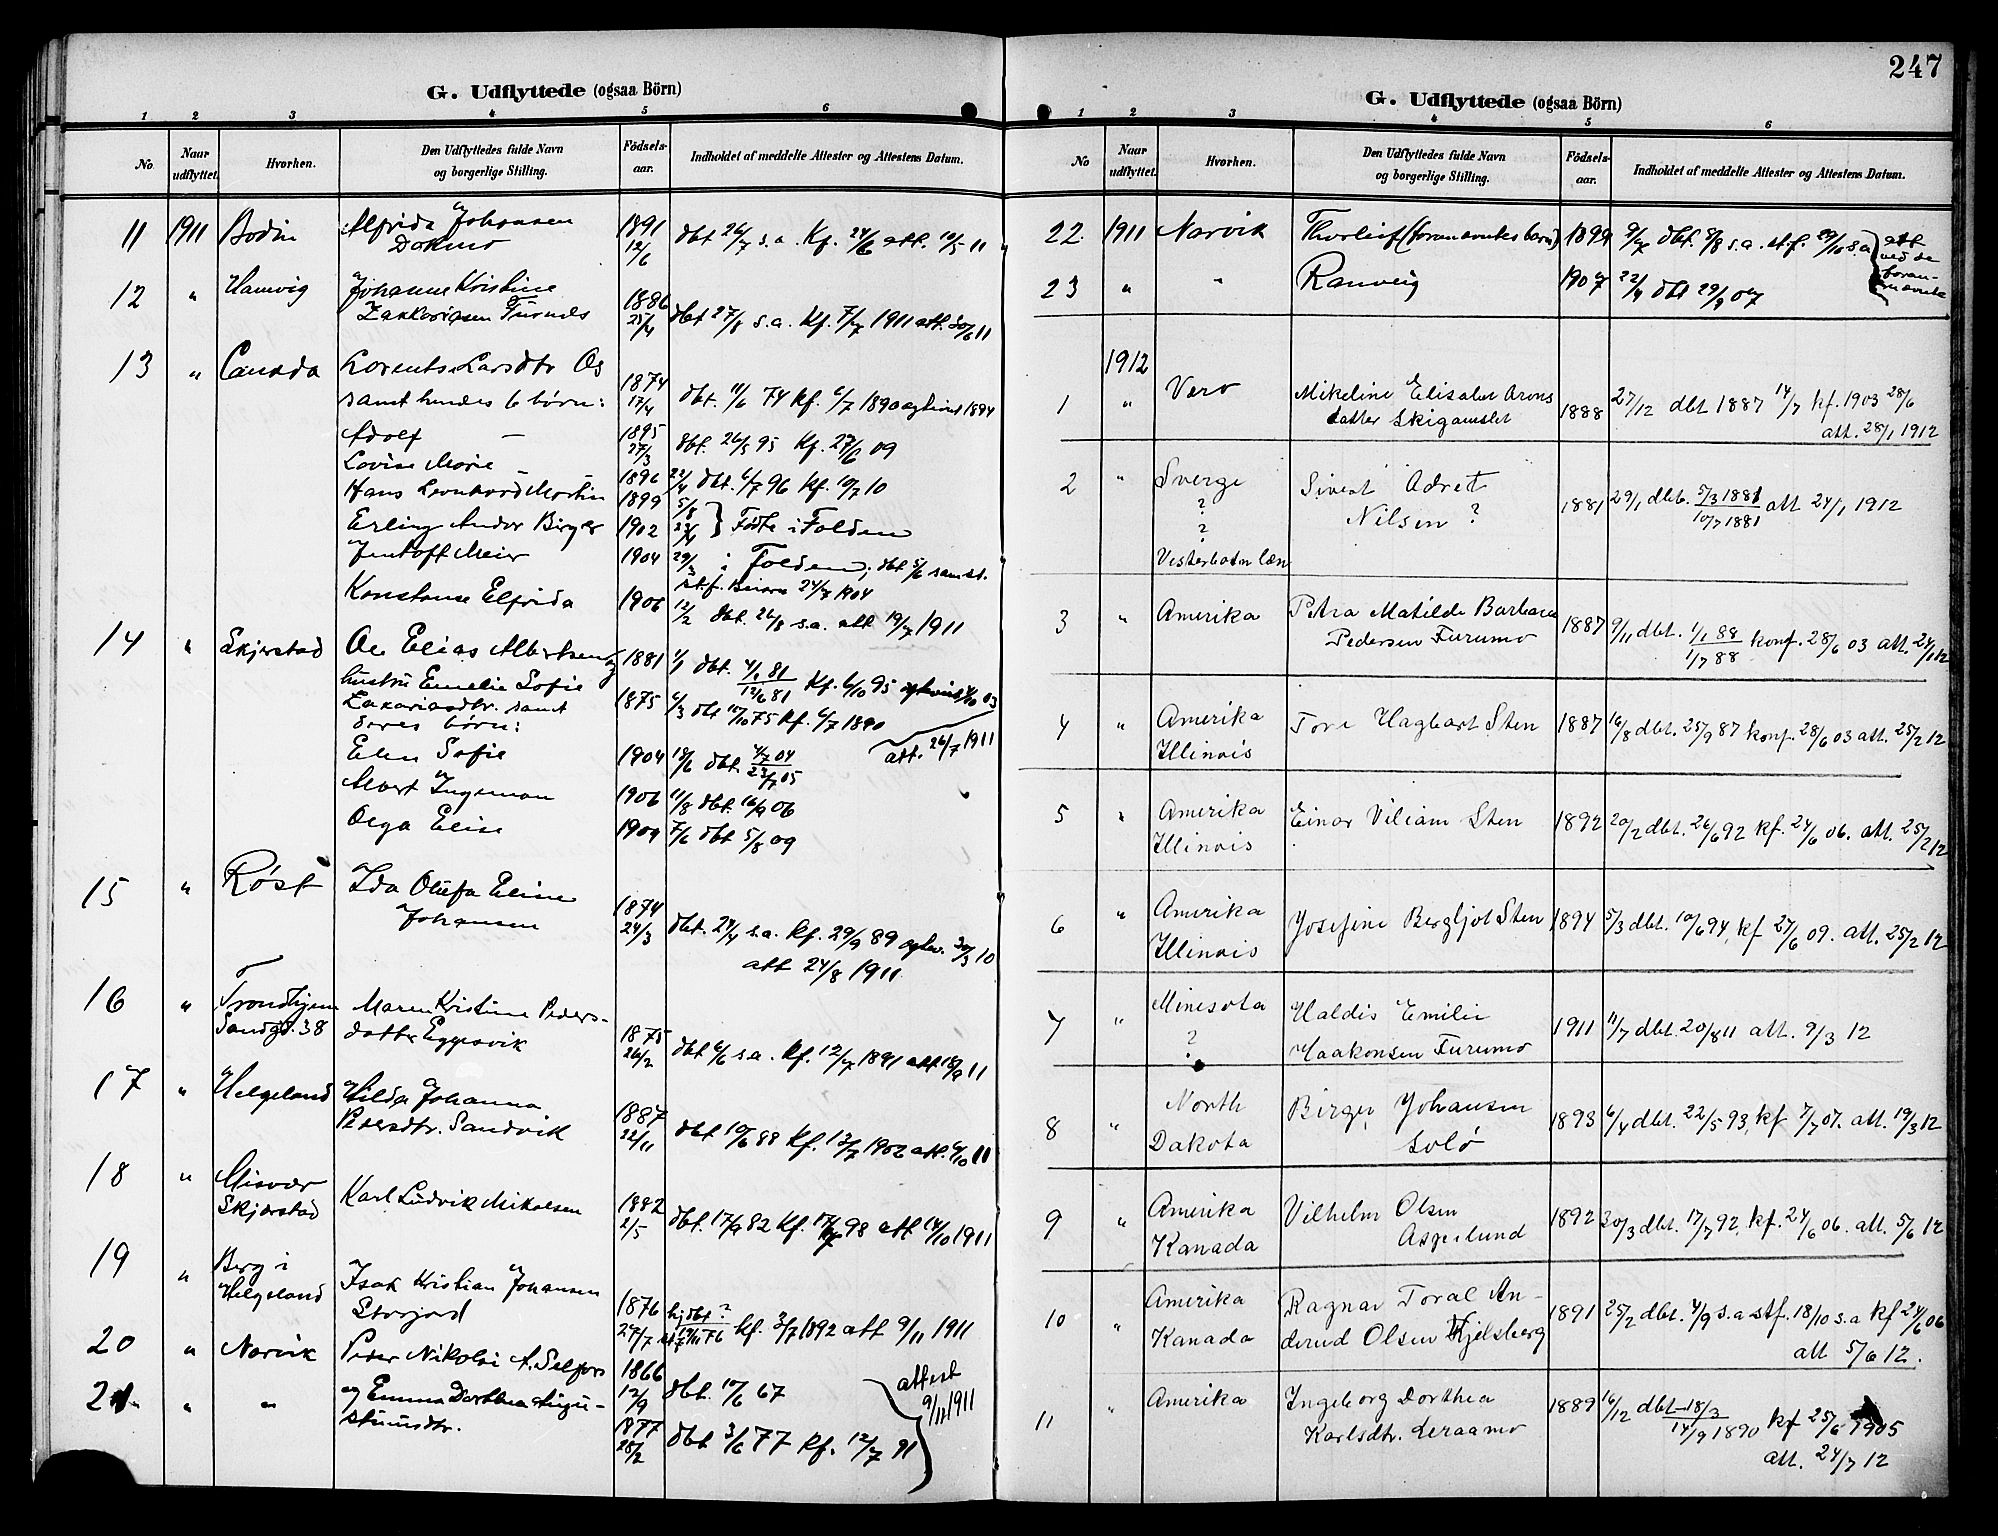 247
G. Udflyttede (ogsaa Börn)
1 2 3 4 5 6
No. Naar udflyttet. Hvorhen. Den Udflyttedes fulde Navn og borgerlige Stilling. Födsels-aar. Indholdet af meddelte Attester og Attestens Datum.
11 1911 Bodin Alfrida Johansen 1891 dbt 26/7 s.a. Kf. 24/6 att. 10/5 11
Dokmo 12/6
12 " Hamvig Johanne Kristine 1886
Zakkariasen Furnes 25/4 dbt 27/8 s.a. Kf. 7/7 1911 att. 20/6 11
13 " Canada Lorentse Larsdtr Os 1874
samt hendes 6 børn: 17/4 dbt. 11/6 74 kf. 6/7 1890 1894
Adolf — 1895 27/3 dbt. 26/5 95 Kf. 27/6 09
Lovise Marie — 1896 22/4 dbt. 6/7 96 kf. 10/7 10
Hans Leonhard Martin 1899 5/8
Erling Andor Birger 1902 23/4 Fødte i Folden
Jentoft Meier 1904 29/3 i Folden, dbt 5/6 samst.
st.f. Beiarn 24/7 1904
Konstanse Elfrida 1906 12/2 dbt. 26/8 s.a. att 19/7 1911
14 " Skjerstad Ole Elias Albertsen og 1881 1/1 dbt. 4/1 81 12/6 81 Kf. 6/10 95 03
hustru Emelie Sofie 1875 6/3 dbt 10/10 75 kf. 6/7 1890
Zakariasdtr. samt
deres børn: att. 26/7 1911
Elen Sofie 1904 18/6 dbt. 4/7 04 23/7 05
Albert Ingeman 1906 11/8 dbt. 16/9 06
Olga Elise 1909 7/6 dbt 5/8 09
15 " Røst Ida Olufa Eline 1874
Johansen 24/3 dbt. 24/4 s.a. kf. 29/9 89 30/3 10
att 24/8 1911
16 " Trondhjem Maren Kristine Peders-
Sandgd. 38 datter Eggesvik 1875 26/2 dbt 6/6 s.a. kf. 12/7 1891 att 18/9 11
17 " Helgeland Hilda Johanna 1887
Pedersdtr. Sandvik 22/11 dbt 10/6 88 Kf. 13/7 1902 att. 6/10 11
18 " Misvær
Skjerstad Karl Ludvik Mikalsen 1882 2/5 dbt. 17/9 82 Kf. 17/7 98 att 14/10 1911
19 " Berg i
Helgeland Isak Kristian Johansen
Storjord 1876 27/7 hjdbt ? 19/11 76 kf. 3/7 1892 att 9/11 1911
20 " Narvik Peder Nikolai A. Selfors 1866 12/9 dbt. 10/6 67 attest
21 " " og Emma Dorthea Augu- 9/11 1911
stinusdtr. 1877 25/2 dbt 3/6 77 kf. 12/7 91
G. Udflyttede (ogsaa Börn)
1 2 3 4 5 6
No Naar udflyttet. Hvorhen. Den Udflyttedes fulde Navn og borgerlige Stilling. Födsels-aar. Indholdet af meddelte Attester og Attestens Datum.
22. 1911 Narvik Thorleif (foranævntes barn) 1899 9/7 dbt. 8/8 s.a. st.f. 29/10 s.a. att
ved de
23 " " Ranveig 1907 22/4 dbt 29/9 07 foran-
nævnte
1912
1 " Vero Mikeline Elisabet Arons 1888 27/12 dbt 1887 14/7 kf. 1903 28/6
datter Skigamslet att. 28/1 1912
2 " Sverge Sivert Adret 1881 29/1 dbt. 5/3 1881 10/7 1881 att 24/1 1912
? Nilsen ?
?
Vesterbotn læn
3 " Amerika Petra Matilde Barbara 1887 9/11 dbt. 1/1 88 1/7 88 konf. 28/6 03 att. 24/1 12
Pedersen Furumo
4 " Amerika Tore Hagbart Sten 1887 16/8 dbt. 25/9 87 konf. 28/6 03 att. 25/2 12
Illinois
5 " Amerika Einar Viliam Sten 1892 20/2 dbt. 26/6 92 kf. 24/6 06. att. 25/2 12
Illinois
6 " Amerika Josefine Bergljot Sten 1894 5/3 dbt. 10/6 94, kf 27/6 09. att. 25/2 12
Illinois
7 " Minesota Haldis Emilie 1911 11/7 dbt. 20/8 11 att. 9/3 12
? Haakonsen Furumo
8 " North Birger Johansen 1893 6/4 dbt. 22/5 93, kf 7/7 07. att. 19/3 12
Dakota Solø
9 " Amerika Vilhelm Olsen 1892 30/3 dbt. 17/7 92, kf. 24/6 06. att. 5/6 12
Kanada Asperlund
10 " Amerika Ragnar Toral An- 1891 25/2 dbt. 4/9 s.a stf. 18/10 s.a kf 24/6 06
Kanada derud Olsen Kjelsberg att 5/6 12.
11 " Amerika Ingeborg Dorthea 1889 16/12 dbt 18/3 14/9 1890 kf 25/6 1905
Karlsdtr. Leraamo att. 24/7 12